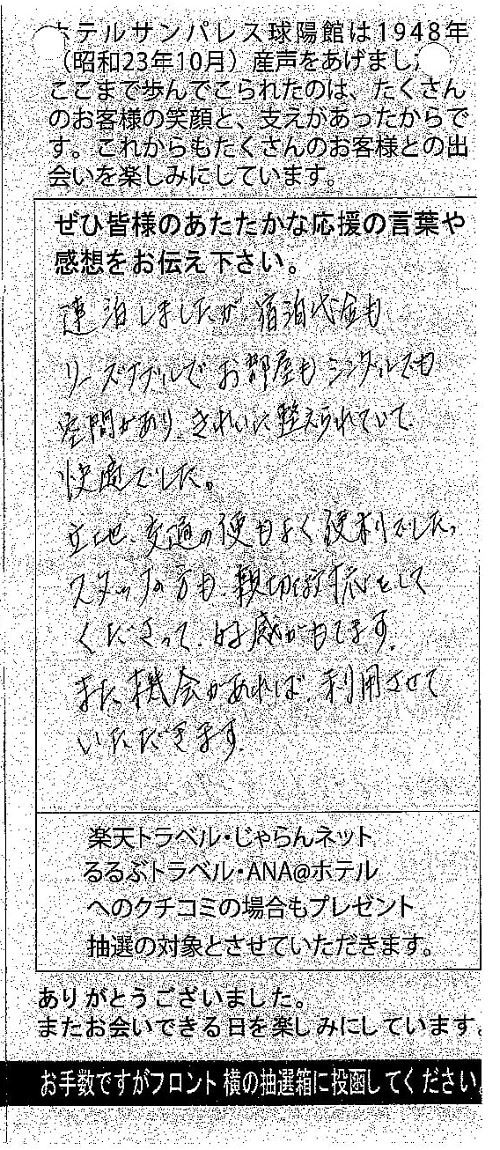 ホテルサンパレス球陽館は1948年
（昭和23年10月）産声をあげました
ここまで歩んでこられたのは、たくさん
のお客様の笑顔と、支えがあったからで
す。これからもたくさんのお客様との出
会いを楽しみにしています。
ぜひ皆様のあたたかな応援の言葉や
感想をお伝え下さい。
連泊しましたが、宿泊代金も
リーズナブルでお部屋もシングルでも
空間があり、きれいに整えられていて
快適でした。
立地、交通の便もよく便利でした。
スタッフの方も、親切な対応をして
くださって、好感がもてます。
また機会があれば、利用させて
いただきます。
楽天トラベル・じゃらんネット
るるぶトラベル・ANA@ホテル
へのクチコミの場合もプレゼント
抽選の対象とさせていただきます。
ありがとうございました。
またお会いできる日を楽しみにしています。
お手数ですがフロント横の抽選箱に投函してください。